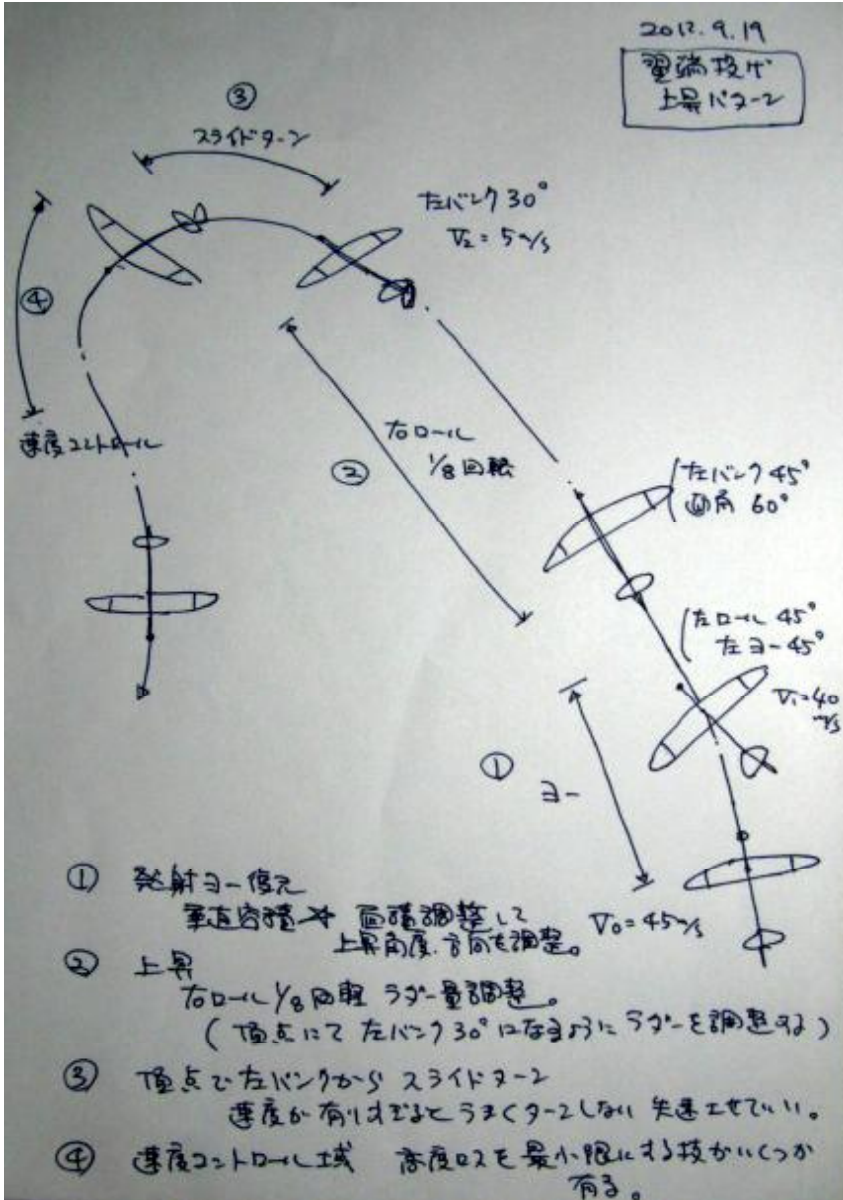 2012.9.19
翼端投げ
上昇パターン
③
スライドターン
左バンク 30°
V₂ = 5m/s
④
速度コントロール
右ロール
1/8 回転
②
左バンク 45°
角 60°
左ロール 45°
左ヨー 45°
V₁=40
m/s
①
ヨー
V₀ = 45m/s
① 発射ヨー復元
垂直容積 面積調整して
上昇角度、方向を調整。
② 上昇
右ロール 1/8 回転 ラダー量調整。
(頂点にて 左バンク 30° になるように ラダーを調整する)
③ 頂点で左バンクから スライドターン
速度が有りすぎるとうまくターンしない 失速させていい。
④ 速度コントロール域 高度ロスを最小限にする技がいくつか
有る。